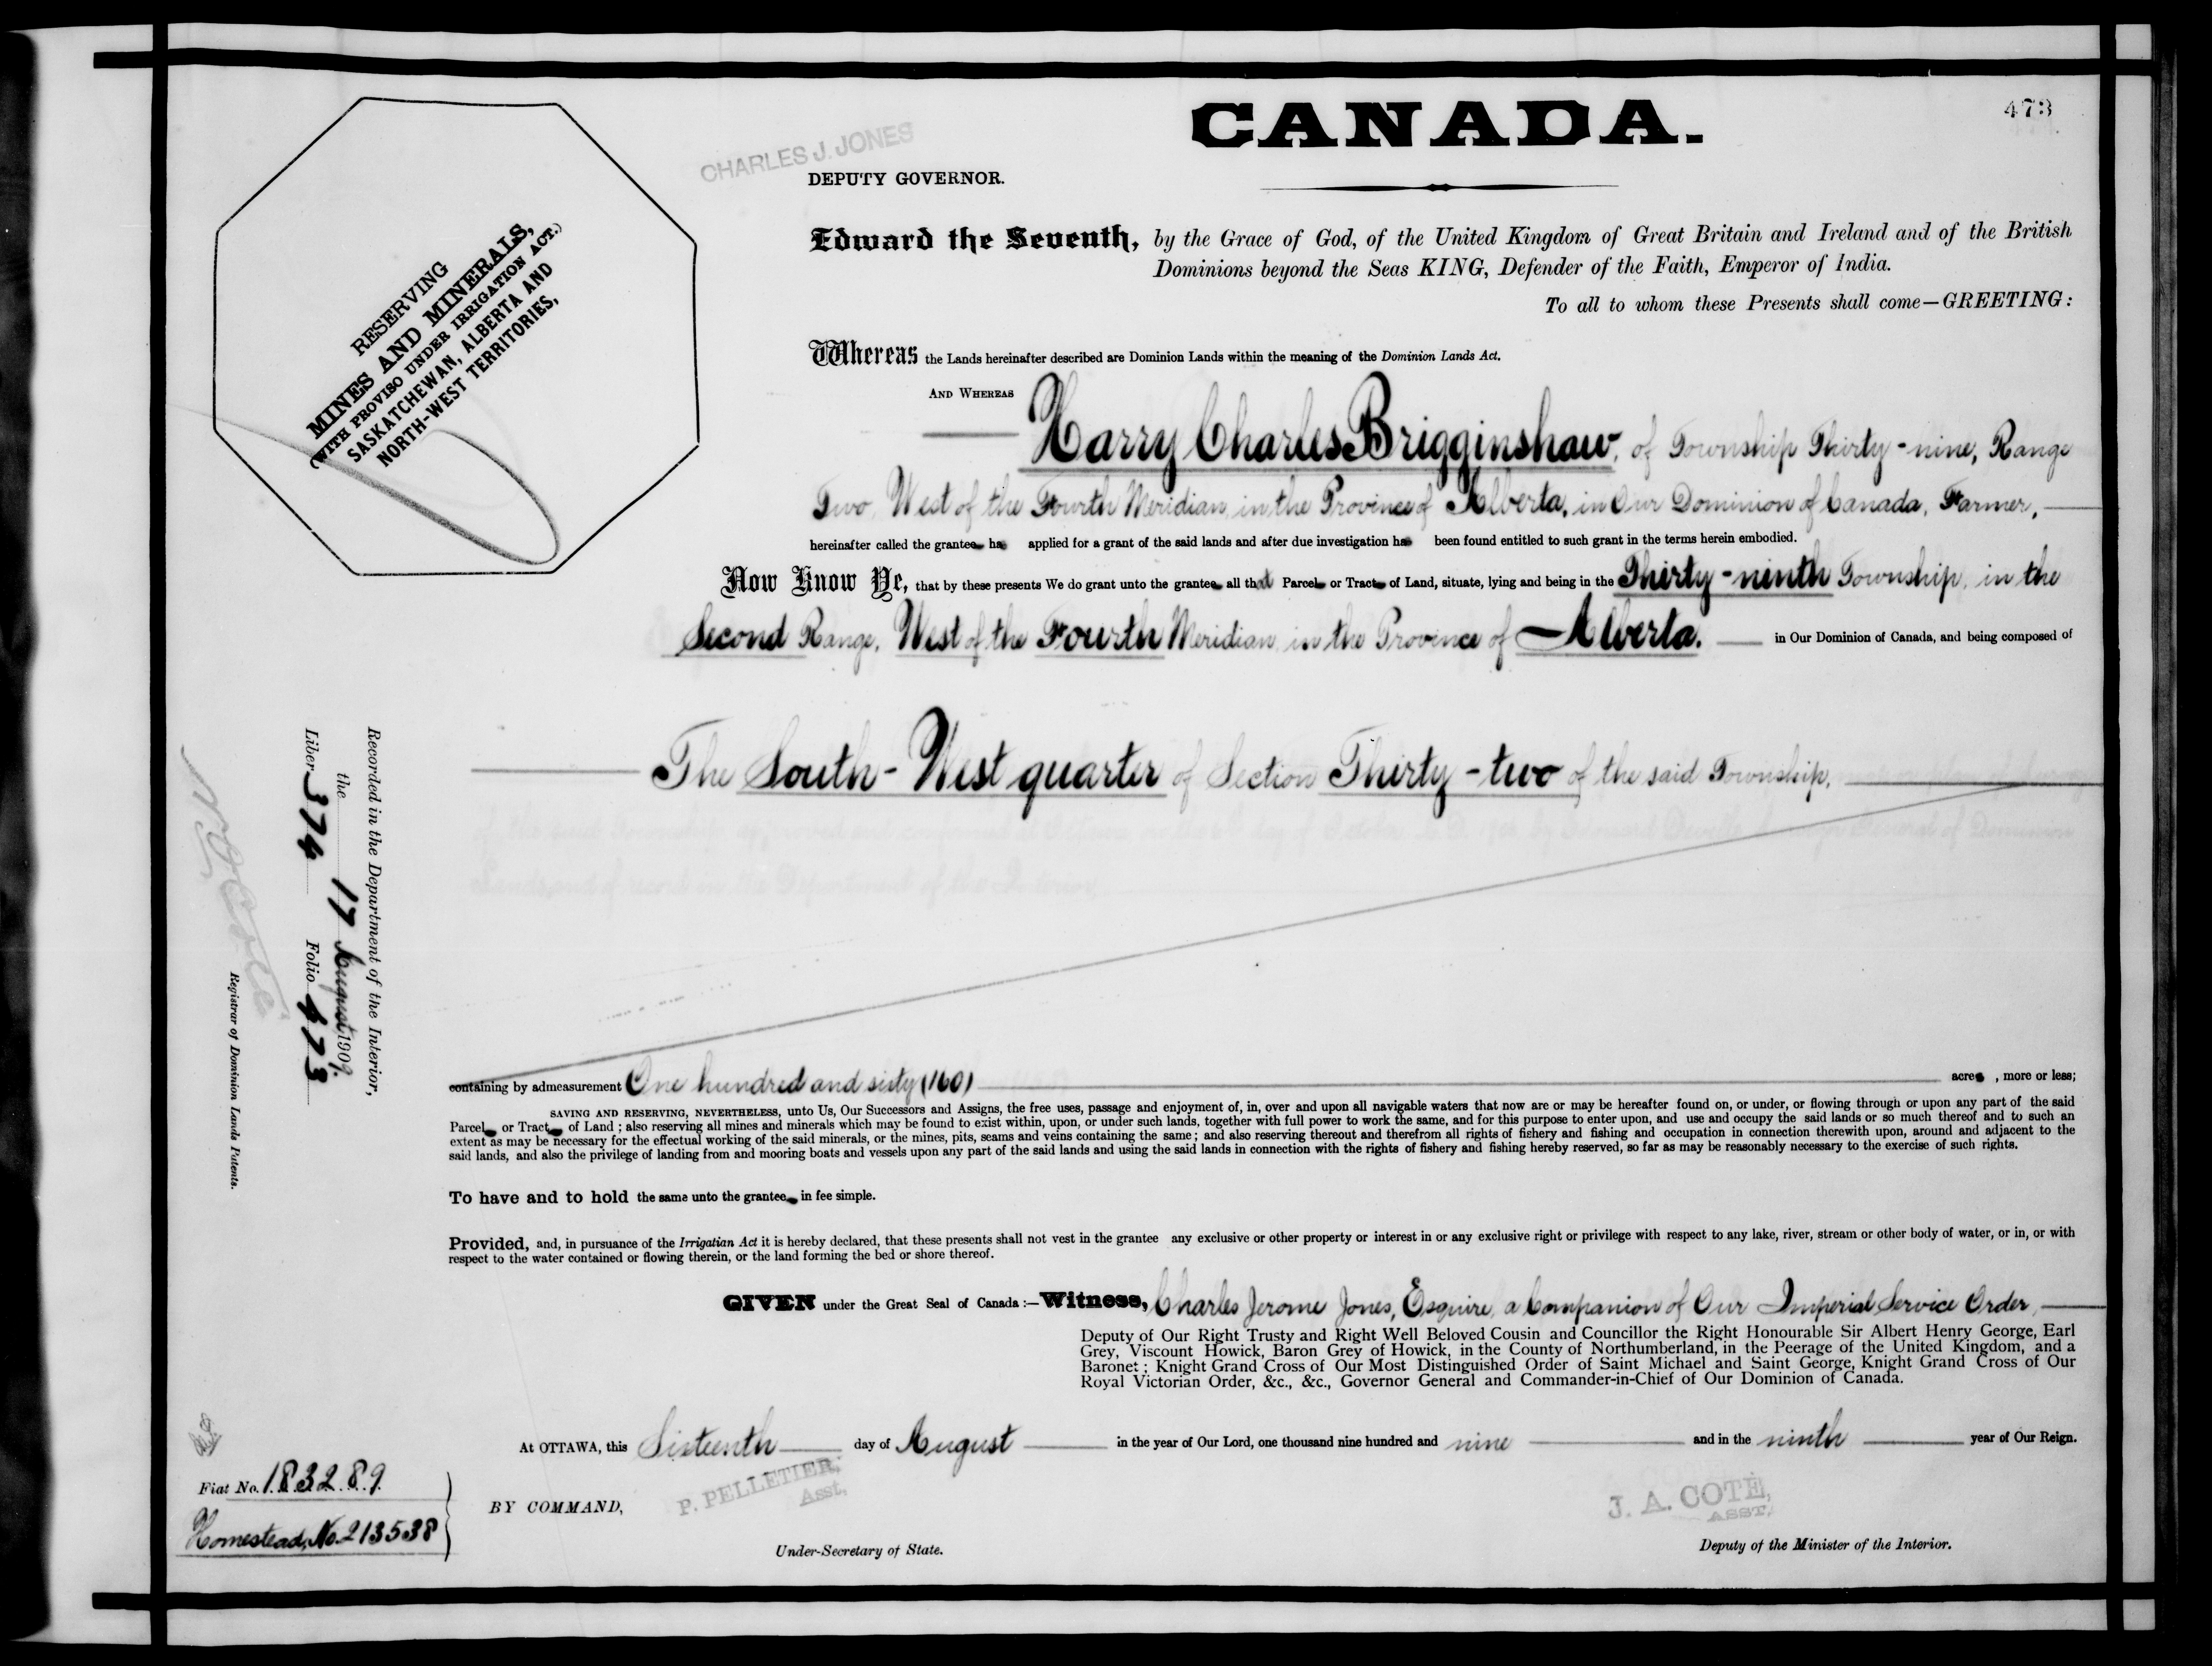 473
CANADA.
CHARLES J. JONES
DEPUTY GOVERNOR.
RESERVING
MINES AND MINERALS,
(WITH PROVISO UNDER IRRIGATION ACT.)
SASKATCHEWAN, ALBERTA AND
NORTH-WEST TERRITORIES,
Edward the Seventh, by the Grace of God, of the United Kingdom of Great Britain and Ireland and of the British
Dominions beyond the Seas KING, Defender of the Faith, Emperor of India.
To all to whom these Presents shall come—GREETING:
Whereas the Lands hereinafter described are Dominion Lands within the meaning of the Dominion Lands Act.
AND WHEREAS
Harry Charles Brigginshaw, of Township Thirty-nine, Range
Two, West of the Fourth Meridian, in the Province of Alberta, in Our Dominion of Canada, Farmer,
hereinafter called the grantee ha applied for a grant of the said lands and after due investigation ha been found entitled to such grant in the terms herein embodied.
Now Know Ye, that by these presents We do grant unto the grantee all that Parcel or Tract of Land, situate, lying and being in the Thirty-ninth Township, in the
Second Range, West of the Fourth Meridian, in the Province of Alberta. in Our Dominion of Canada, and being composed of
The South-West quarter of Section Thirty-two of the said Township,
containing by admeasurement One hundred and sixty (160) acres, more or less;
SAVING AND RESERVING, NEVERTHELESS, unto Us, Our Successors and Assigns, the free uses, passage and enjoyment of, in, over and upon all navigable waters that now are or may be hereafter found on, or under, or flowing through or upon any part of the said
Parcel or Tract of Land ; also reserving all mines and minerals which may be found to exist within, upon, or under such lands, together with full power to work the same, and for this purpose to enter upon, and use and occupy the said lands or so much thereof and to such an
extent as may be necessary for the effectual working of the said minerals, or the mines, pits, seams and veins containing the same ; and also reserving thereout and therefrom all rights of fishery and fishing and occupation in connection therewith upon, around and adjacent to the
said lands, and also the privilege of landing from and mooring boats and vessels upon any part of the said lands and using the said lands in connection with the rights of fishery and fishing hereby reserved, so far as may be reasonably necessary to the exercise of such rights.
To have and to hold the same unto the grantee in fee simple.
Provided, and, in pursuance of the Irrigatian Act it is hereby declared, that these presents shall not vest in the grantee any exclusive or other property or interest in or any exclusive right or privilege with respect to any lake, river, stream or other body of water, or in, or with
respect to the water contained or flowing therein, or the land forming the bed or shore thereof.
GIVEN under the Great Seal of Canada :—Witness, Charles Jerome Jones, Esquire, a Companion of Our Imperial Service Order,
Deputy of Our Right Trusty and Right Well Beloved Cousin and Councillor the Right Honourable Sir Albert Henry George, Earl
Grey, Viscount Howick, Baron Grey of Howick, in the County of Northumberland, in the Peerage of the United Kingdom, and a
Baronet ; Knight Grand Cross of Our Most Distinguished Order of Saint Michael and Saint George, Knight Grand Cross of Our
Royal Victorian Order, &c., &c., Governor General and Commander-in-Chief of Our Dominion of Canada.
At OTTAWA, this Sixteenth day of August in the year of Our Lord, one thousand nine hundred and nine and in the ninth year of Our Reign.
BY COMMAND,
P. PELLETIER,
Asst.
Under-Secretary of State.
J. A. COTÉ,
ASST,
Deputy of the Minister of the Interior.
Recorded in the Department of the Interior,
the 17 August 1909.
Liber 374 Folio 473
Registrar of Dominion Lands Patents.
Fiat No. 183289
Homestead, No. 213538